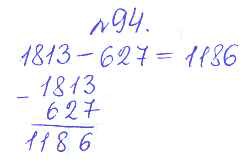 №94.
1813 - 627 = 1186
- 1813
627
1186